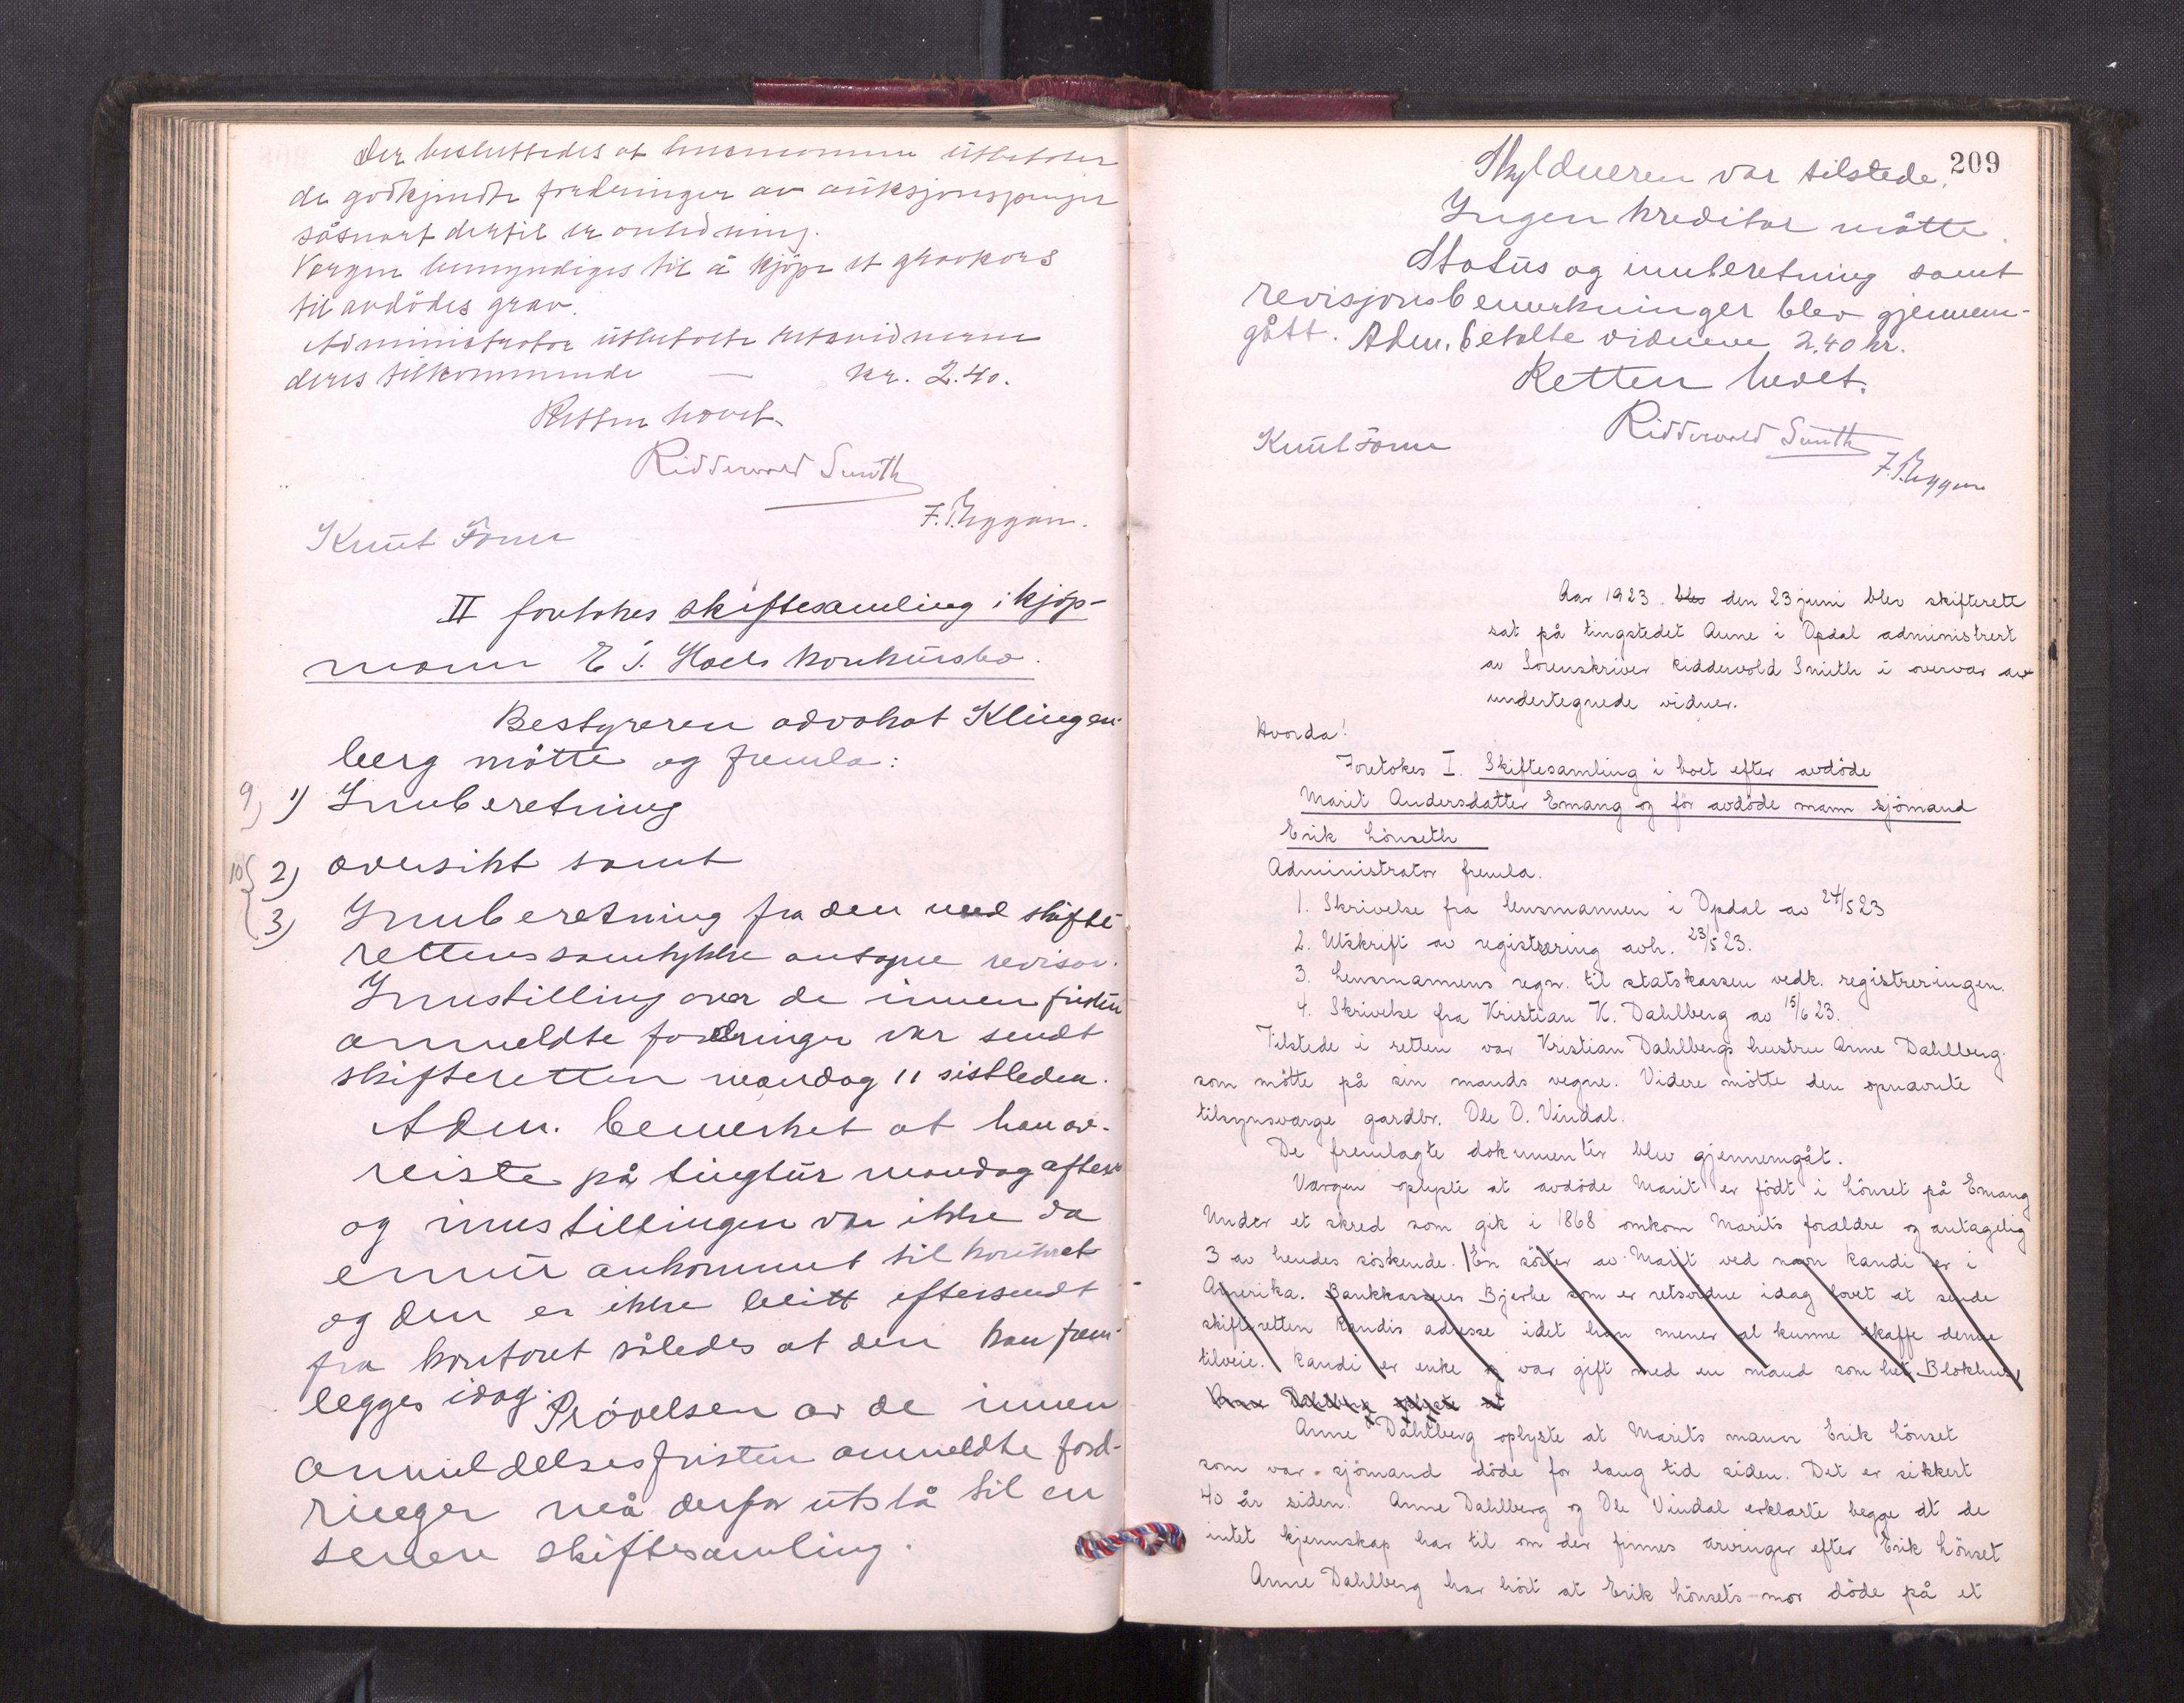 Der besluttedes at lensmannen utbetaler
de godkjendte fordringer av auksjonspenger
såsnart dertil er anledning.
Vergen bemyndiges til å kjöpe et gravkors
til avdödes grav.
Administrator utbetalte retsvidnerne
deres tilkommende — kr. 2.40.
Retten hævet.
Ridderwold Smith
F. Eggan.
Knut Forne
II foretokes skiftesamling i kjöp-
mann E. J. Hoels konkursbo.
Bestyreren advokat Klingen-
berg mötte og fremla:
9) 1) Innberetning
10 { 2) oversikt samt
3) Innberetning fra den med skifte-
rettens samtykke antagne revisor.
Innstilling over de innen fristen
anmeldte fordringer var sendt
skifteretten mandag 11 sistleden.
Adm. bemerket at han av-
reiste på tingtur mandag aften
og innstillingen var ikke da
ennu ankommet til kontoret
og den er ikke blitt eftersendt
fra kontoret således at den kan frem-
legges idag. Prövelsen av de innen
anmeldelsesfristen anmeldte ford-
ringer må derfor utstå til en
senere skiftesamling.
209
Skyldneren var tilstede.
Ingen kreditor mötte.
Status og innberetning samt
revisjonsbemerkninger blev gjennem-
gått. Adm. betalte vidnene 2.40 kr.
Retten hevet.
Ridderwold Smith
Knut Forne
F. Eggan
Aar 1923 blev den 23 juni blev skifterett
sat på tingstedet Aune i Opdal administrert
av Sorenskriver Ridderwold Smith i overvær av
undertegnede vidner.
Hvorda!
Foretokes I. Skiftesamling i boet efter avdöde
Marit Andersdatter Emang og för avdöde mann sjömand
Erik Lönseth
Administrator fremla.
1. Skrivelse fra lensmannen i Opdal av 24/5 23
2. Utskrift av registrering avh. 23/5 23.
3. Lensmannens regn. til statskassen vedk. registreringen.
4. Skrivelse fra Kristian K. Dahlberg av 15/6 23.
Tilstede i retten var Kristian Dahlbergs hustru Anne Dahlberg
som mötte på sin mands vegne. Videre mötte den opnævnte
tilsynsværge gardbr. Ole O. Vindal.
De fremlagte dokumenter blev gjennemgåt.
Værgen oplyste at avdöde Marit er födt i Lönset på Emang
Under et skred som gik i 1868 omkom Marits foraldre og antagelig
3 av hendes söskende. En söster av Marit ved navn Randi er i
Amerika. Bankkasserer Bjerke som er retsvidne idag lovet at sende
skifteretten Randis adresse idet han mener at kunne skaffe denne
tilveie. Randi er enke og var gift med en mand som het Blokhus,
Anne Dahlberg oplyste at
Anne Dahlberg oplyste at Marits mann Erik Lönset
som var sjömand döde for lang tid siden. Det er sikkert
40 år siden. Anne Dahlberg og Ole Vindal erklærte begge at de
intet kjennskap har til om der finnes arvinger efter Erik Lönset
Anne Dahlberg har hört at Erik Lönsets mor döde på et